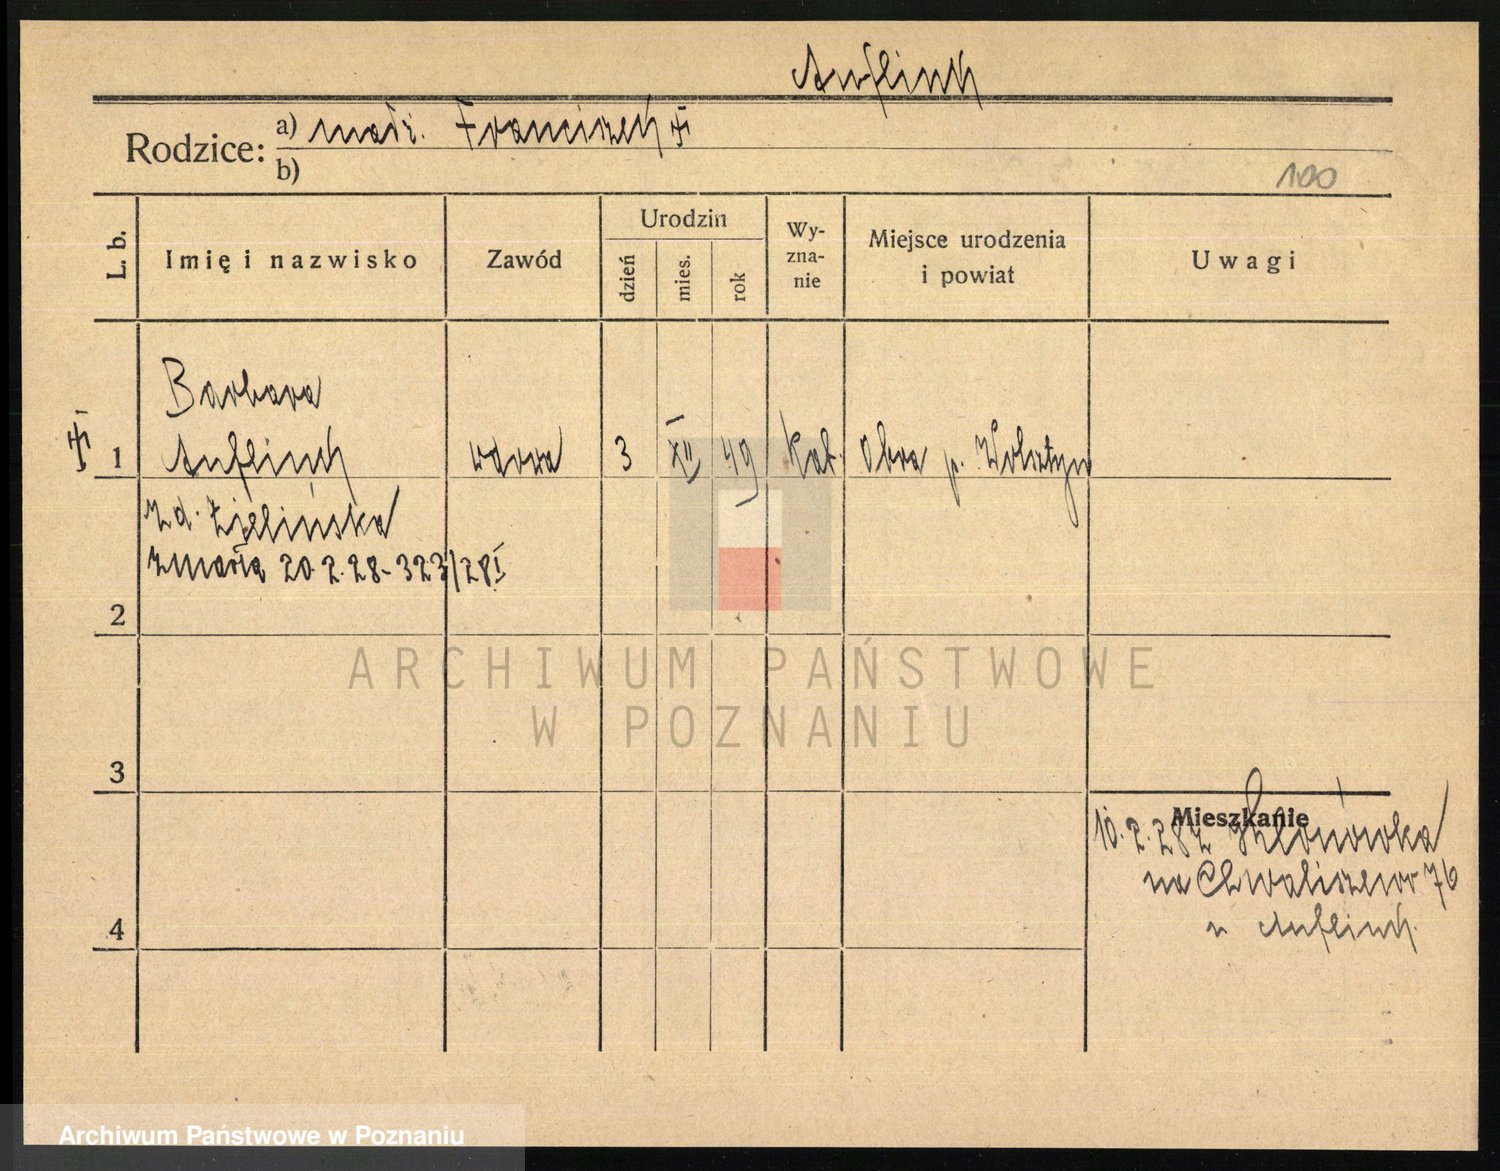 Anflink
Rodzice: a) mąż. Franciszek
b)
100
L. b. Imię i nazwisko Zawód Urodzin dzień mies. rok Wy-zna-nie Miejsce urodzenia i powiat Uwagi
Barbara
1 Anflink wdowa 3 XII 49 kat. Obra p. Wolsztyn
zd. Zielińska
zmarła 20.2.28 - 323/28
2
ARCHIWUM PAŃSTWOWE
W POZNANIU
3
Mieszkanie
10.2.28 z
na Chwaliszewo 76
4
u Anflink.
Archiwum Państwowe w Poznaniu